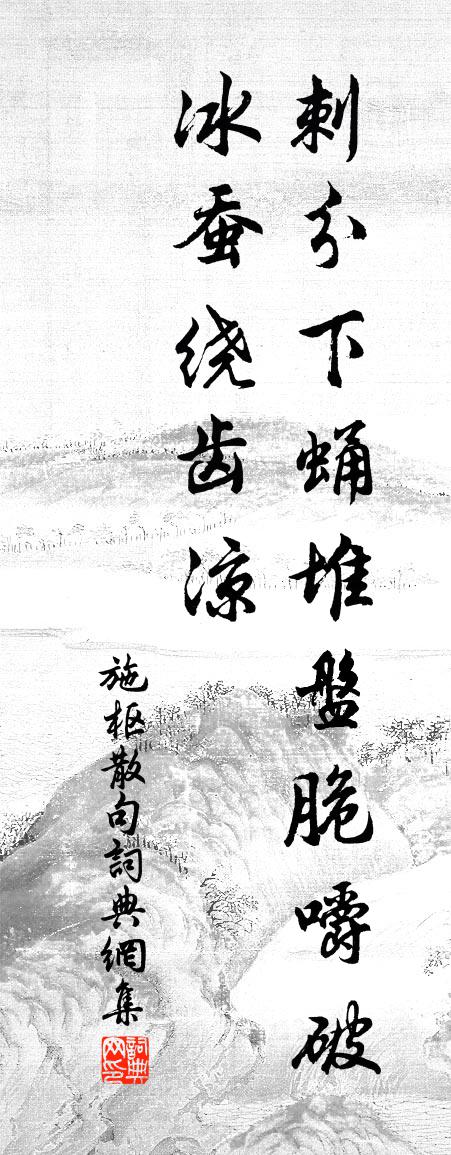 刺分下蛹堆盤脆嚼破
冰蚕绕齿凉
施枢散句詞典網集
詞典网印